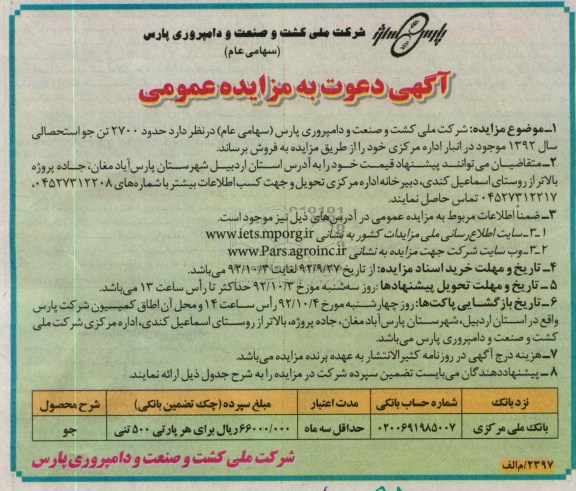 پارس
شرکت ملی کشت و صنعت و دامپروری پارس
(سهامی عام)
آگهی دعوت به مزایده عمومی
۱ـ موضوع مزایده: شرکت ملی کشت و صنعت و دامپروری پارس (سهامی عام) در نظر دارد حدود ۲۷۰۰ تن جو استحصالی
سال ۱۳۹۲ موجود در انبار اداره مرکزی خود را از طریق مزایده به فروش برساند.
۲ـ متقاضیان می‌توانند پیشنهاد قیمت خود را به آدرس استان اردبیل شهرستان پارس‌آباد مغان، جاده پروژه
بالاتر از روستای اسماعیل کندی، دبیرخانه اداره مرکزی تحویل و جهت کسب اطلاعات بیشتر با شماره‌های ۰۴۵۲۷۳۱۲۲۰۸،
۰۴۵۲۷۳۱۲۲۱۷ تماس حاصل نمایند.
۳ـ ضمنا اطلاعات مربوط به مزایده عمومی در آدرس‌های ذیل نیز موجود است.
۱ـ۳ـ سایت اطلاع‌رسانی ملی مزایدات کشور به نشانی www.iets.mporg.ir
۲ـ۳ـ وب سایت شرکت جهت مزایده به نشانی www.Pars.agroinc.ir
۴ـ تاریخ و مهلت خرید اسناد مزایده: از تاریخ ۹۲/۹/۲۷ لغایت ۹۲/۱۰/۳ می‌باشد.
۵ ـ تاریخ و مهلت تحویل پیشنهادها: روز سه‌شنبه مورخ ۹۲/۱۰/۳ حداکثر تا رأس ساعت ۱۳ می‌باشد.
۶ ـ تاریخ بازگشایی پاکت‌ها: روز چهارشنبه مورخ ۹۲/۱۰/۴ رأس ساعت ۱۴ و محل آن اطاق کمیسیون شرکت پارس
واقع در استان اردبیل، شهرستان پارس‌آباد مغان، جاده پروژه، بالاتر از روستای اسماعیل کندی، اداره مرکزی شرکت ملی
کشت و صنعت و دامپروری پارس می‌باشد.
۷ـ هزینه درج آگهی در روزنامه کثیرالانتشار به عهده برنده مزایده می‌باشد.
۸ ـ پیشنهاددهندگان می‌بایست تضمین سپرده شرکت در مزایده را به شرح جدول ذیل ارائه نمایند.
نزد بانک شماره حساب بانکی مدت اعتبار مبلغ سپرده (چک تضمین بانکی) شرح محصول
بانک ملی مرکزی ۰۲۰۰۶۹۱۹۸۵۰۰۷ حداقل سه ماه ۶۶۰۰۰/۰۰۰ ریال برای هر پارتی ۵۰۰ تنی جو
۲۳۹۷/م الف
شرکت ملی کشت و صنعت و دامپروری پارس